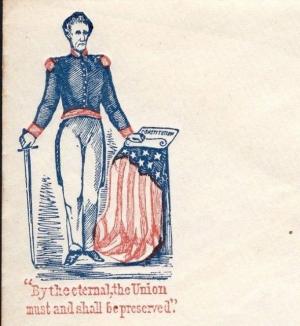 CONSTITUTION
"By the eternal, the Union
must and shall be preserved".